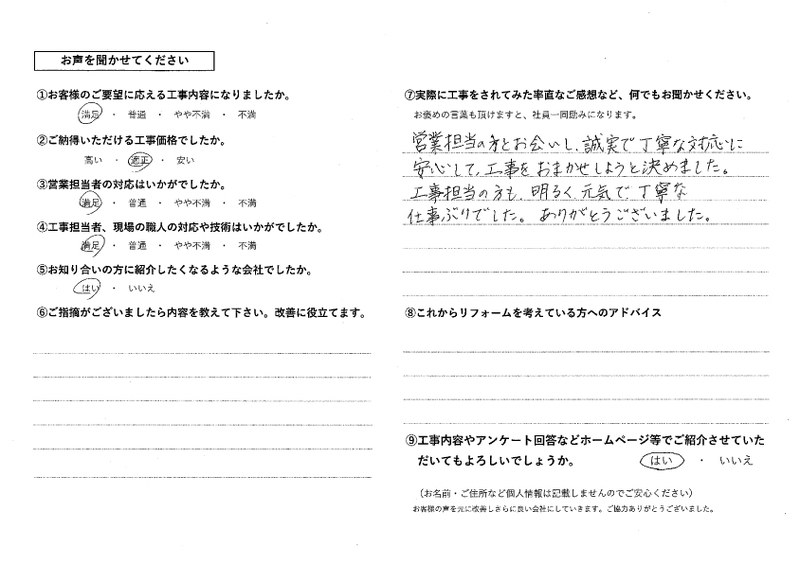 お声を聞かせてください
①お客様のご要望に応える工事内容になりましたか。
満足 ・ 普通 ・ やや不満 ・ 不満
②ご納得いただける工事価格でしたか。
高い ・ 適正 ・ 安い
③営業担当者の対応はいかがでしたか。
満足 ・ 普通 ・ やや不満 ・ 不満
④工事担当者、現場の職人の対応や技術はいかがでしたか。
満足 ・ 普通 ・ やや不満 ・ 不満
⑤お知り合いの方に紹介したくなるような会社でしたか。
はい ・ いいえ
⑥ご指摘がございましたら内容を教えて下さい。改善に役立てます。
⑦実際に工事をされてみた率直なご感想など、何でもお聞かせください。
お褒めの言葉も頂けますと、社員一同励みになります。
営業担当の方とお会いし、誠実で丁寧な対応に
安心して、工事をおまかせしようと決めました。
工事担当の方も、明るく元気で丁寧な
仕事ぶりでした。ありがとうございました。
⑧これからリフォームを考えている方へのアドバイス
⑨工事内容やアンケート回答などホームページ等でご紹介させていた
だいてもよろしいでしょうか。 はい ・ いいえ
（お名前・ご住所など個人情報は記載しませんのでご安心ください）
お客様の声を元に改善しさらに良い会社にしていきます。ご協力ありがとうございました。